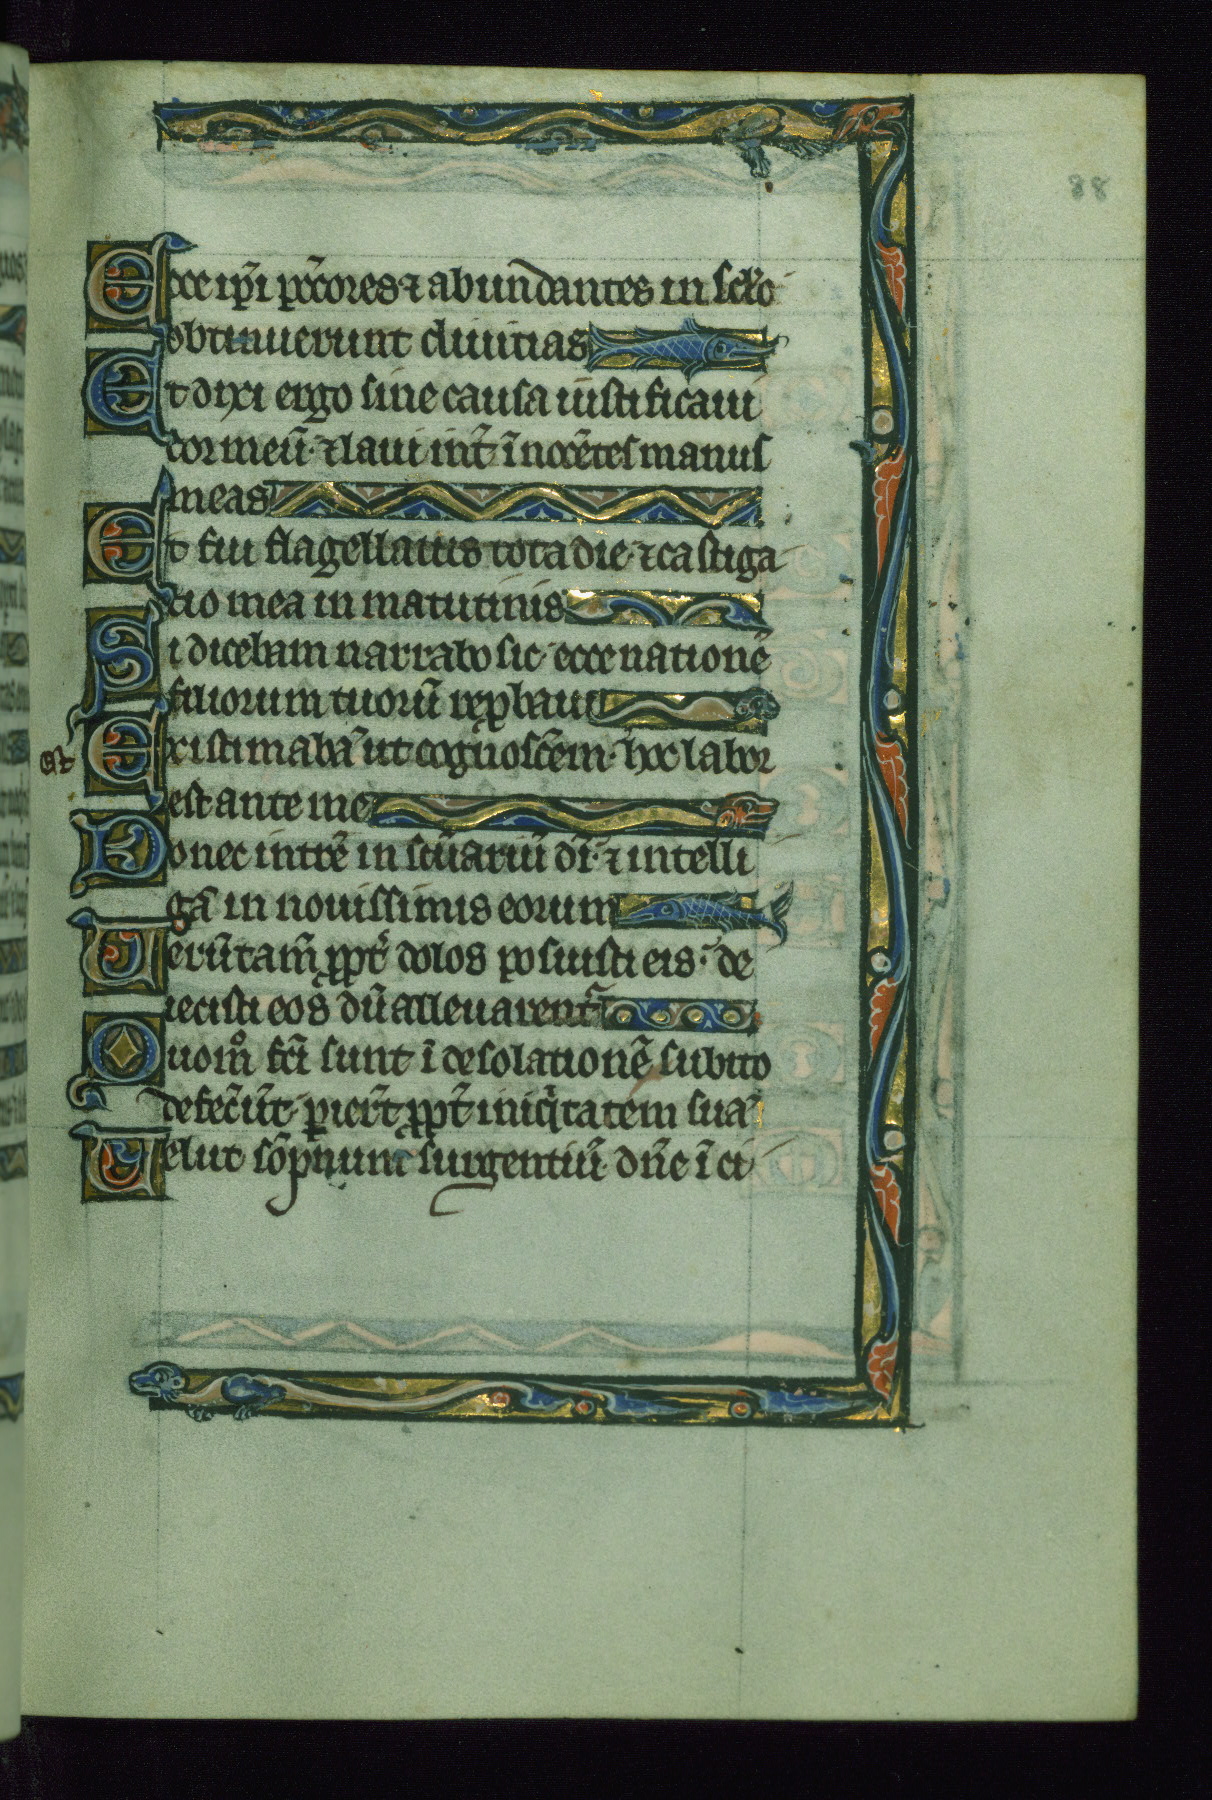 88
Ecce ip̃i pc̃c̃ores ⁊ abundantes in sc̃lo
obtinuerunt diuitias
Et dixi ergo sine causa iustificaui
cor meũ· ⁊ laui int̃ ĩnocẽtes manus
meas
Et fui flagellatus tota die· ⁊ castiga
tio mea in matutinis
Si dicebam narrabo sic· ecce nationẽ
filiorum tuorũ rep̱baui
Et
Existimabã ut cognosc̃em· hoc labor
est ante me
Donec intrẽ in sc̃uariũ dĩ· ⁊ intelli
gã in nouissimis eorum
Uerũtam̃ ꝓpt̃ dolos posuisti eis· de
iecisti eos dũ alleuarent̃
Quom̊ fc̃i sunt ĩ desolationẽ subito
defec̃ũt· ꝑier̃t ꝓpt̃ iniq̃tatem suã
Uelut sõpnum surgentiũ dñe ĩ ci